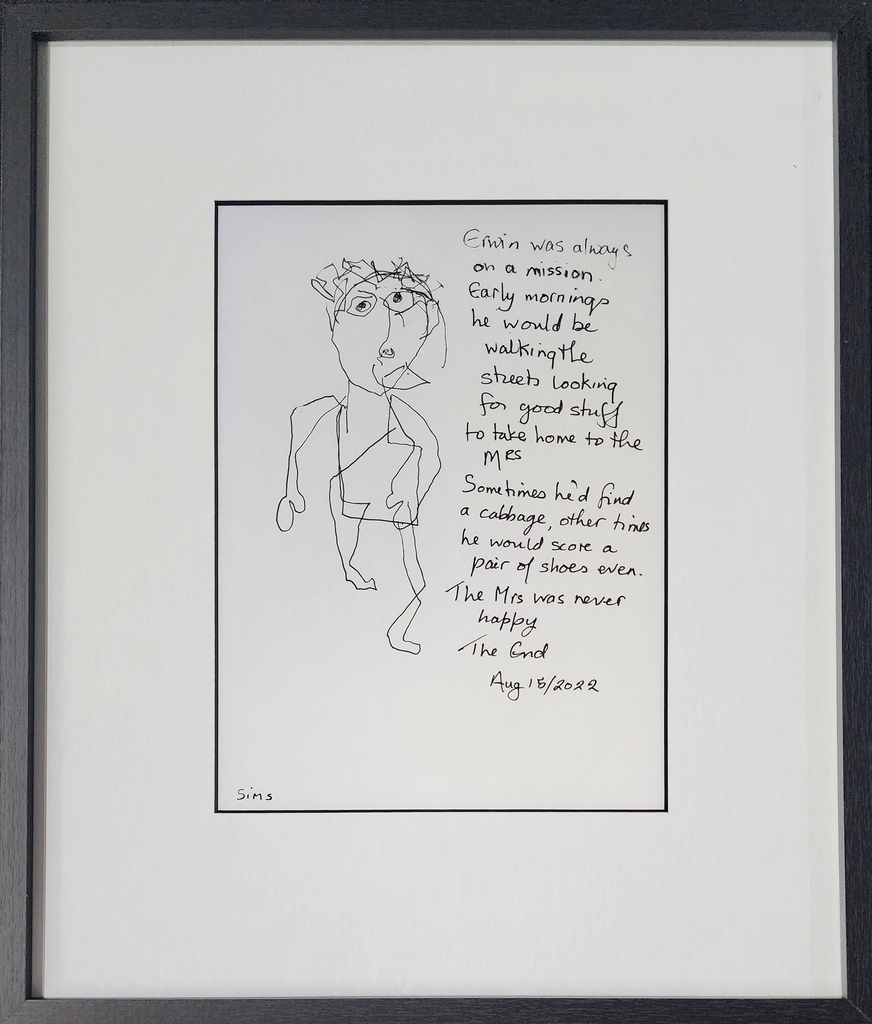 Erwin was always
on a mission.
Early mornings
he would be
walking the
streets looking
for good stuff
to take home to the
Mrs
Sometimes he'd find
a cabbage, other times
he would score a
pair of shoes even.
The Mrs was never
happy
The End
Aug 15/2022
Sims